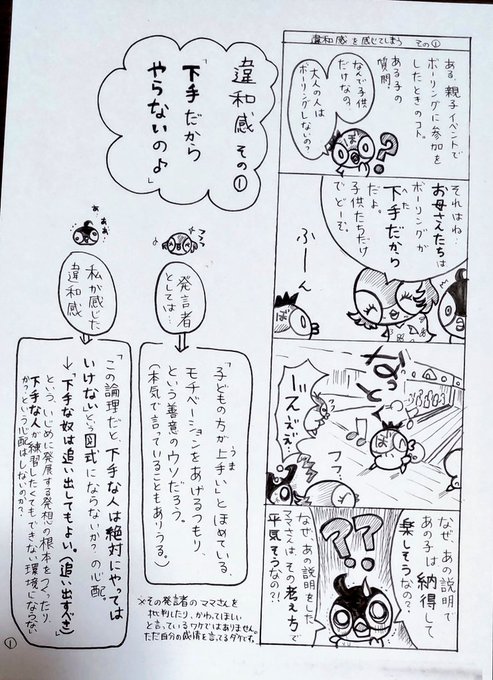 違和感を感じてしまう その①
ある、親子イベントで
ボーリングに参加を
したときのコト。
ある子の
質問。
なんで子供
だけなの?
大人の人は
ボーリングしないの?
それはね…
お母さんたちは
ボーリングが
下手だから
へた
だよ。
子供たちだけ
でどーぞ。
ふーん
なっと
なぜ、あの説明で
あの子は納得して
楽しそうなの?
なぜ、あの説明をした
ママさんは、その考えちで
平気そうなの?!
違和感 その①
「下手だから
やらないの♪」
発言者
としては…
「子どもの方が上手い」とほめている、
うま
モチベーションをあげるつもり、
という善意のウソだろう。
(本気で言っていることもありうる。)
私が感じた
違和感
「この論理だと、下手な人は絶対にやっては
いけないという図式にならないか?」の心配。
→「下手な奴は追い出してもよい。追い出すべき」
という、いじめに発展する発想の根本をつくったり、
下手な人が練習したくてもできない環境にならない
か?という心配はしないのか?
※その発言者のママさんを
批判したり、かわってほしい
と言っているワケではありません。
ただ自分の感情を言ってるダケです。
①